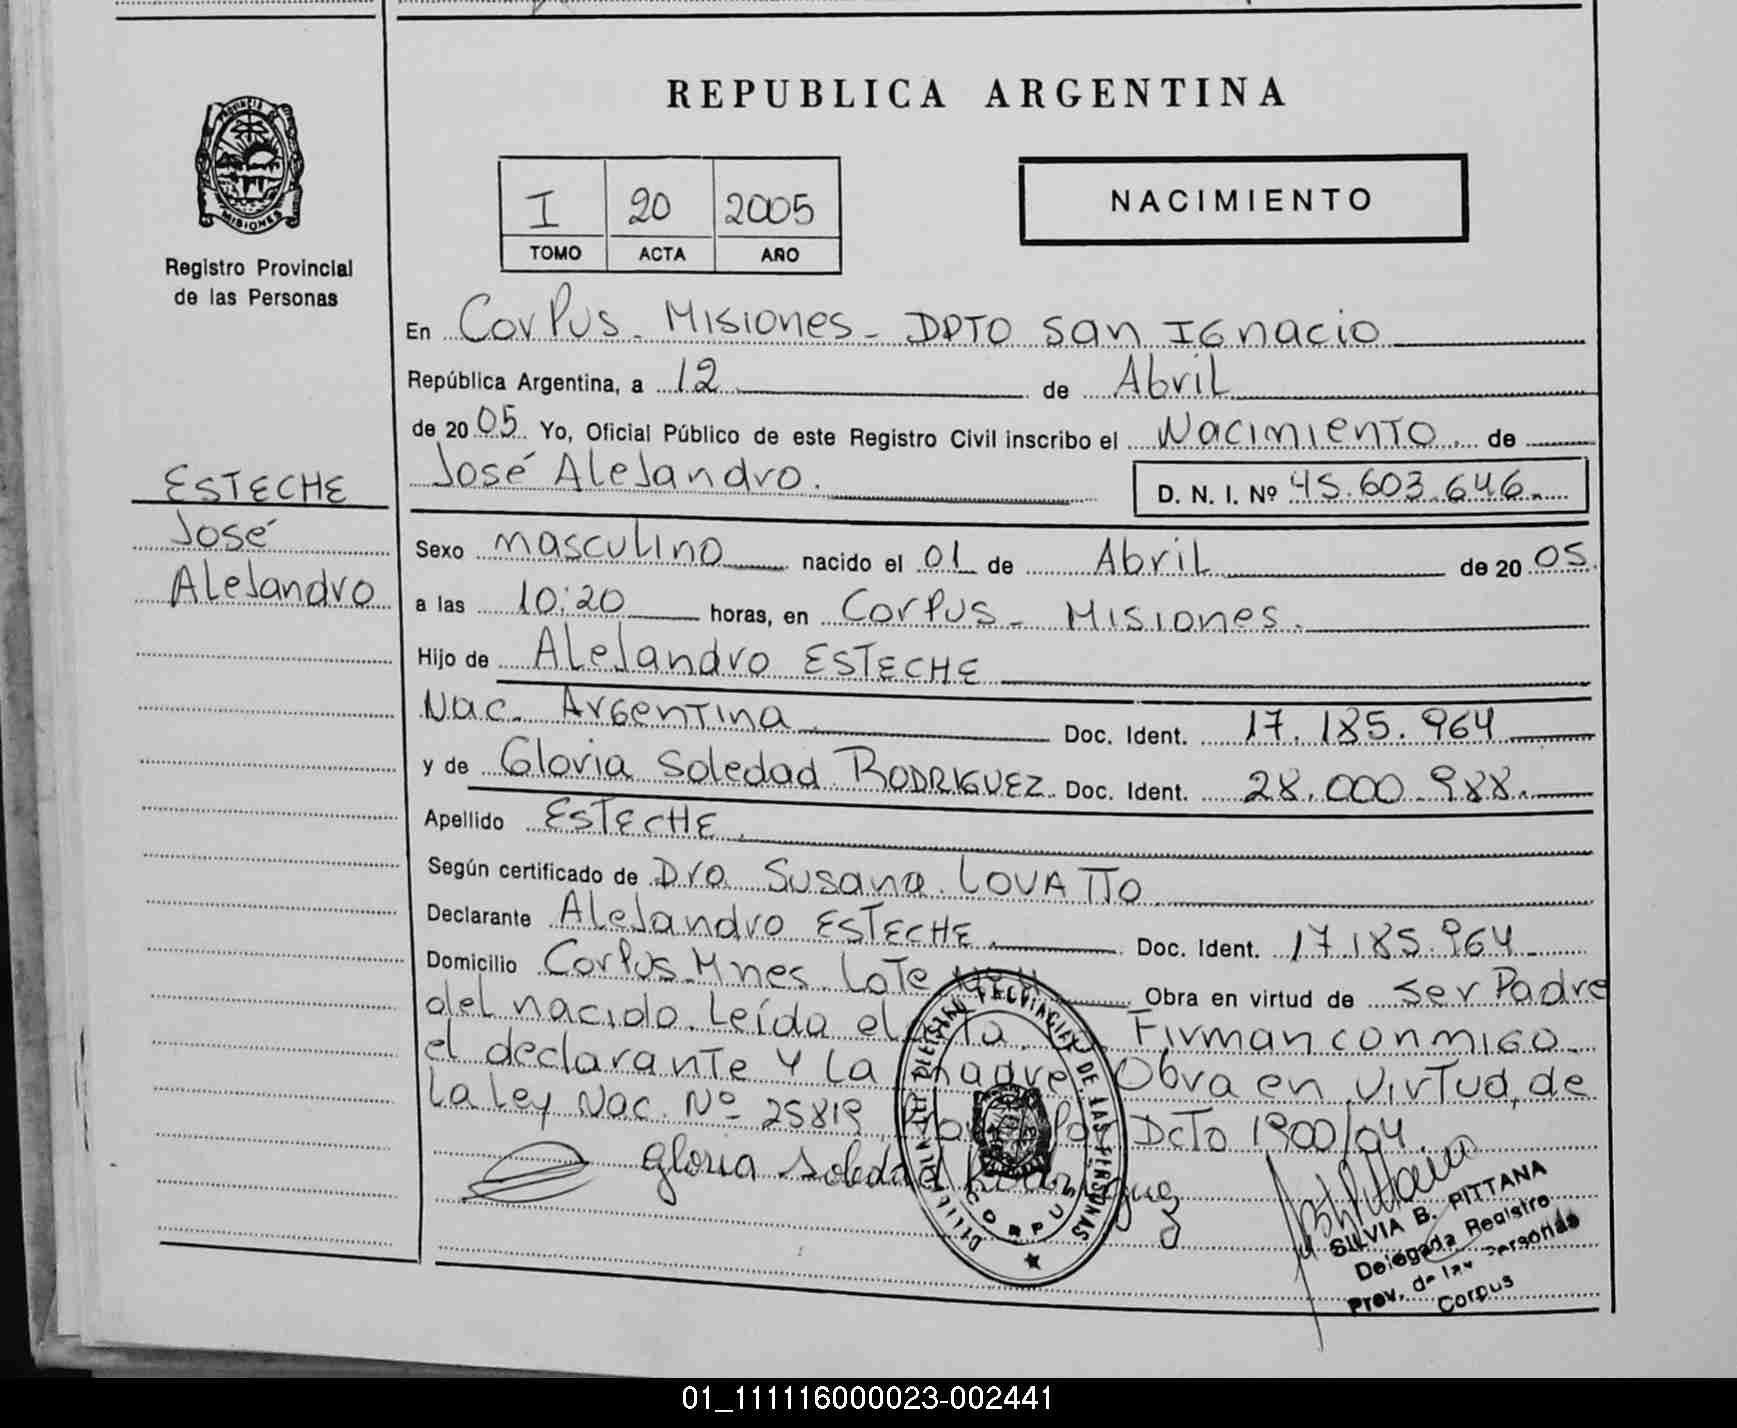 REPUBLICA ARGENTINA
PROVINCIA DE
MISIONES
Registro Provincial
de las Personas
I 20 2005
TOMO ACTA AÑO
NACIMIENTO
En Corpus - Misiones - DPTO San Ignacio
República Argentina, a 12 de Abril
de 20 05 Yo, Oficial Público de este Registro Civil inscribo el Nacimiento de
José Alejandro. D. N. I. Nº 45.603.646.
ESTECHE
José
Alejandro
Sexo masculino nacido el 01 de Abril de 20 05.
a las 10:20 horas, en Corpus - Misiones.
Hijo de Alejandro ESTECHE
Nac. Argentina Doc. Ident. 17.185.964
y de Gloria Soledad RODRIGUEZ. Doc. Ident. 28.000.988.
Apellido ESTECHE.
Según certificado de Dra Susana LOVATTO
Declarante Alejandro ESTECHE. Doc. Ident. 17.185.964
Domicilio Corpus Mnes. Lote Obra en virtud de ser Padre
del nacido. Leída el Firman conmigo
el declarante y la madre Obra en virtud de
la ley Nac. Nº 25819, Por Dcto 1900/04
Gloria Soledad Rodriguez
REGISTRO PROVINCIAL DE LAS PERSONAS
CORPUS
SILVIA B. PITTANA
Delegada Registro
Prov. de las Personas
Corpus
01_111116000023-002441